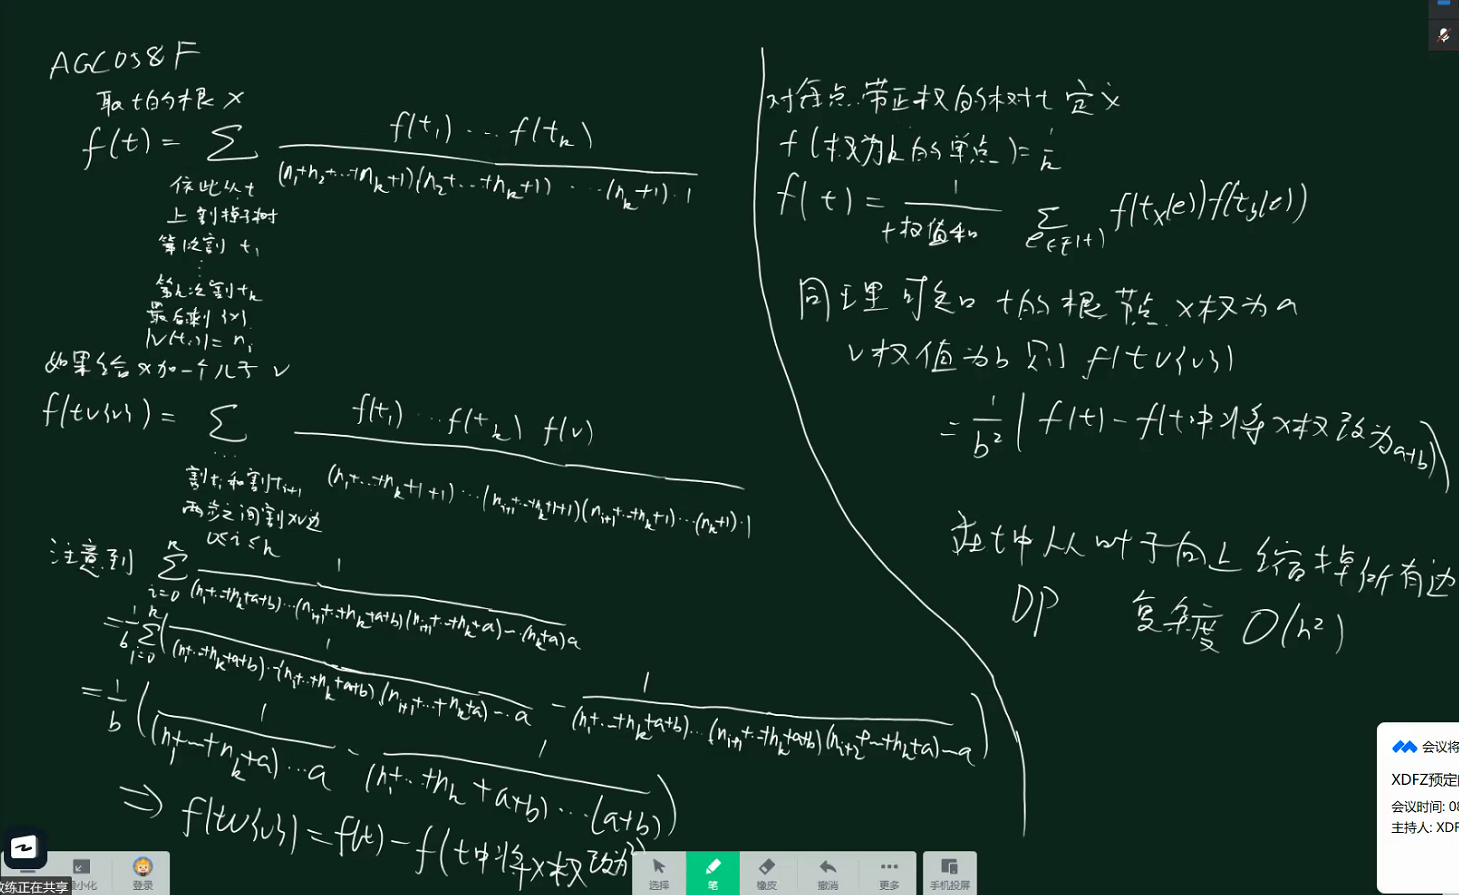 AGC058F
取t的根 x
f(t) = ∑ f(t₁) ⋯ f(tₖ) / (n₁+n₂+⋯+nₖ+1)(n₂+⋯+nₖ+1) ⋯ (nₖ+1)·1
依此从t
上割掉子树
第1次割 t₁
⋮
第k次割tₖ
最后剩{x}
|V(tᵢ)|=nᵢ
如果给x加一个儿子 v
f(t∪{v}) = ∑ f(t₁) ⋯ f(tₖ) f(v) / (n₁+⋯+nₖ+1+1) ⋯ (nᵢ₊₁+⋯+nₖ+1+1)(nᵢ₊₁+⋯+nₖ+1) ⋯ (nₖ+1)·1
⋯
割tᵢ和割tᵢ₊₁
两步之间割xv边
0≤i≤k
注意到 ∑ᵢ₌₀ᵏ 1 / (n₁+⋯+nₖ+a+b)⋯(nᵢ₊₁+⋯+nₖ+a+b)(nᵢ₊₁+⋯+nₖ+a)⋯(nₖ+a)a
= 1/b ∑ᵢ₌₀ᵏ ( 1 / (n₁+⋯+nₖ+a+b)⋯(nᵢ₊₁+⋯+nₖ+a+b)(nᵢ₊₁+⋯+nₖ+a)⋯a
= 1/b ( 1 / (n₁+⋯+nₖ+a)⋯a − 1 / (n₁+⋯+nₖ+a+b)⋯(a+b) )
− 1 / (n₁+⋯+nₖ+a+b)⋯(nᵢ₊₁+⋯+nₖ+a+b)(nᵢ₊₂+⋯+nₖ+a)⋯a )
⇒ f(t∪{v}) = f(t) − f(t中将x权改为
对每点带正权的树t定义
f(权为k的单点) = 1/k
f(t) = 1/t权值和 ∑ₑ∈E(t) f(tₓ(e)) f(t_y(e))
同理可知 t的根节点 x权为a
v权值为b 则 f(t∪{v})
= 1/b² ( f(t) − f(t中将x权改为a+b) )
在t中从叶子向上缩掉所有边
DP 复杂度 O(n²)
会议将
XDFZ预定
会议时间: 08
主持人: XDF
小化
登录
选择
笔
橡皮
撤消
更多
手机投屏
教练正在共享